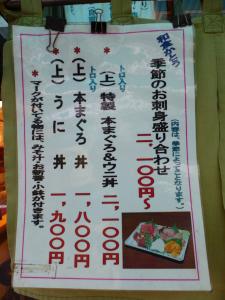 和食かとう
季節のお刺身盛り合わせ
(内容は、季節によってことなります。)
二、一〇〇円〜
トロ入り
*(上)特製 本まぐろ&ウニ丼 二、一〇〇円
トロ入り
*(上)本まぐろ丼 一、八〇〇円
*(上)うに丼 一、九〇〇円
*マークが付いてる物には、みそ汁・お新香・小鉢が付きます。